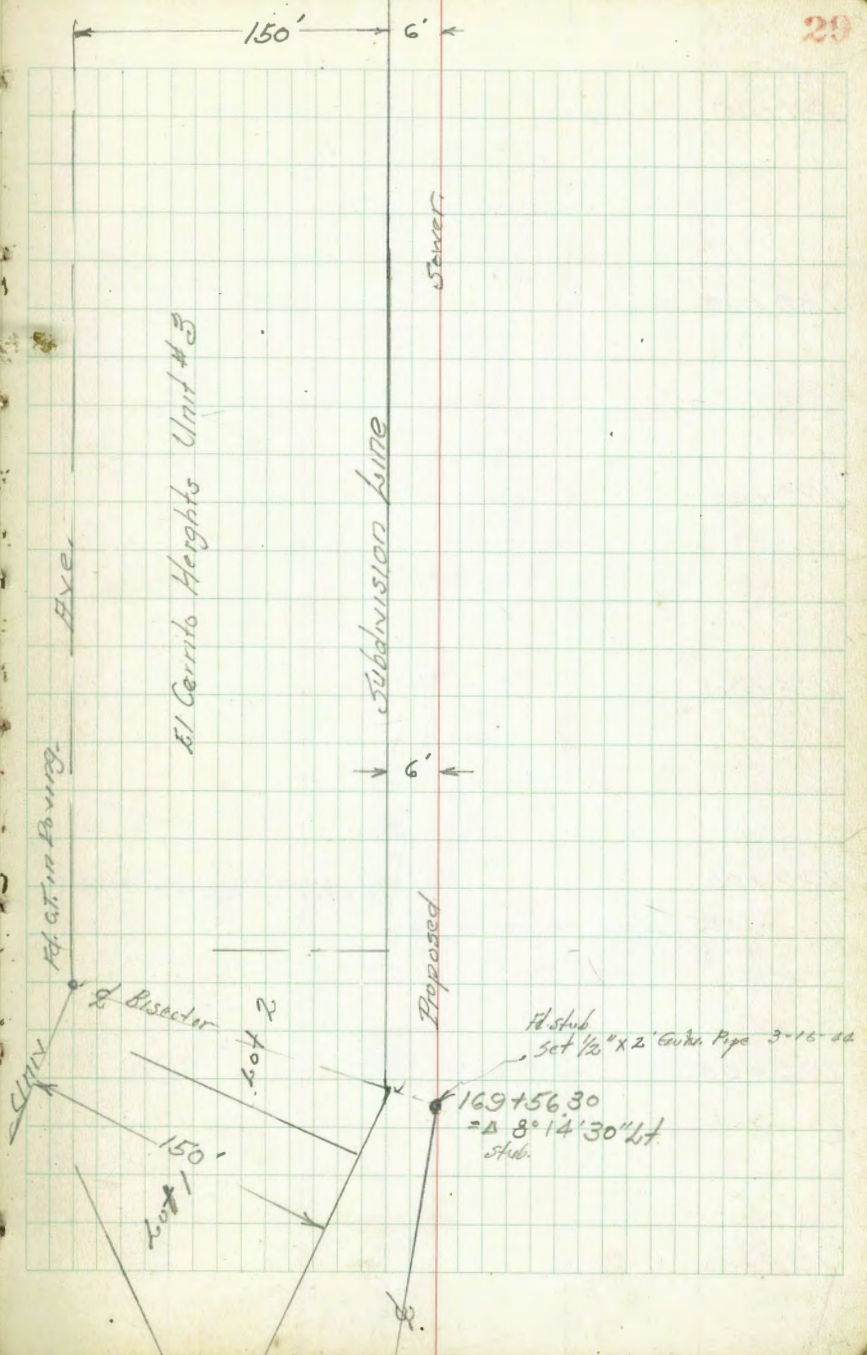 29
150'
6'
Sewer
El Cerrito Heights Unit #3
Subdivision Line
Ave.
6'
Proposed
℄ Bisector
Lot 2
Fd. stub
Set 1/2" x 2'
Pipe 3-16-44
169+56.30
=Δ 8°14'30" Lt
Stub.
Univ
150'
Lot 1
℄